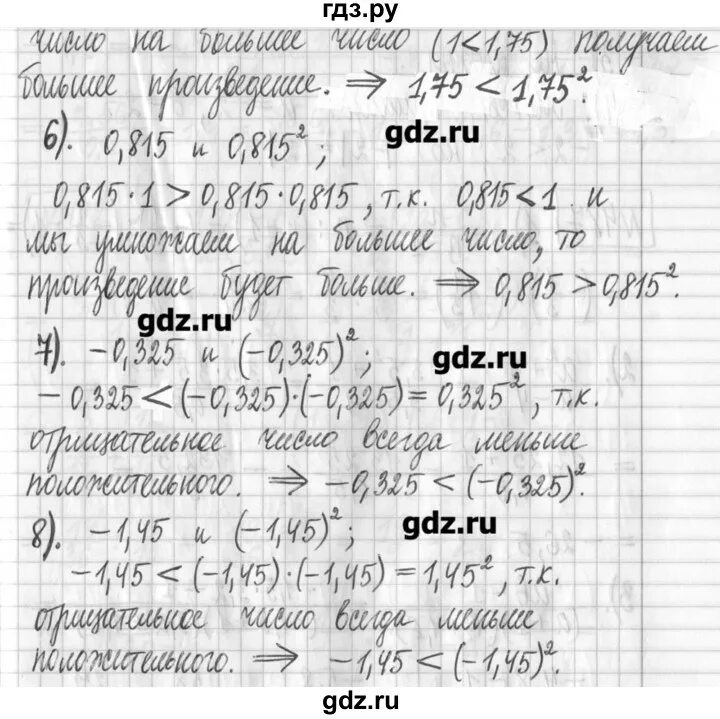 гдз.ру
число на большее число (1<1,75) получаем
большее произведение. ⇒ 1,75 < 1,75².
6). 0,815 и 0,815²; gdz.ru
0,815·1 > 0,815·0,815, т.к. 0,815<1 и
мы умножаем на большее число, то
произведение будет больше. ⇒ 0,815 > 0,815².
gdz.ru
7). -0,325 и (-0,325)²; gdz.ru
-0,325 < (-0,325)·(-0,325) = 0,325², т.к.
отрицательное число всегда меньше
положительного. ⇒ -0,325 < (-0,325)².
8). -1,45 и (-1,45)²; gdz.ru
-1,45 < (-1,45)·(-1,45) = 1,45², т.к.
отрицательное число всегда меньше
положительного. ⇒ -1,45 < (-1,45)².
gdz.ru